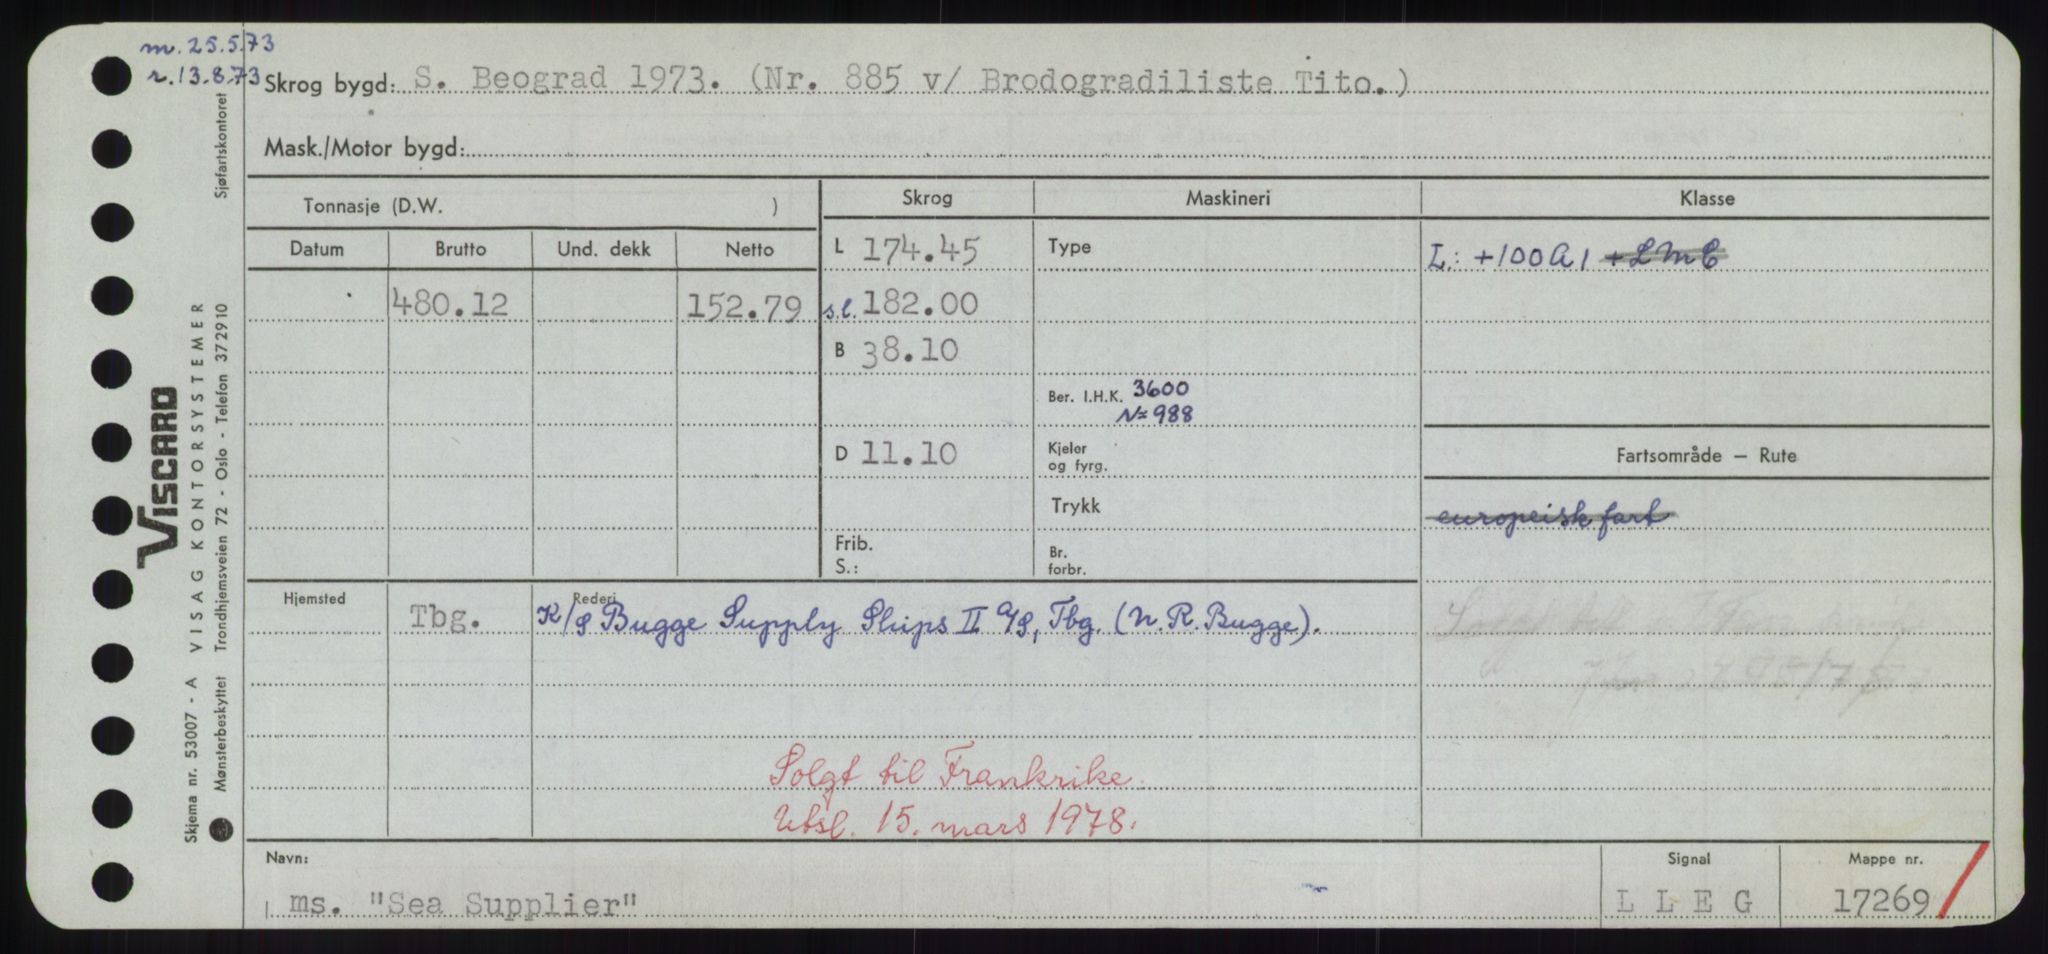 m. 25.5.73
r. 13.8.73
Skrog bygd: S. Beograd 1973. (Nr. 885 v/ Brodogradiliste Tito.)
Mask./Motor bygd:
Tonnasje (D.W. )
Skrog
Maskineri
Klasse
Datum Brutto Und. dekk Netto
L 174.45
Type
L.: +100A1 +LMC
480.12 152.79
s.l. 182.00
B 38.10
Ber. I.H.K. 3600
N=988
D 11.10
Kjeler
og fyrg.
Fartsområde — Rute
Trykk
europeisk fart
Frib.
S.:
Br.
forbr.
Hjemsted
Rederi
Tbg. K/S Bugge Supply Ships II A/S, Tbg. (N.R. Bugge).
Solgt til
Solgt til Frankrike.
Utsl. 15. mars 1978.
Navn:
Signal
Mappe nr.
ms. "Sea Supplier"
L L E G
17269
Sjøfartskontoret
VISCARD
VISAG KONTORSYSTEMER
Trondhjemsveien 72 - Oslo - Telefon 372910
Skjema nr. 53007 - A
Mønsterbeskyttet